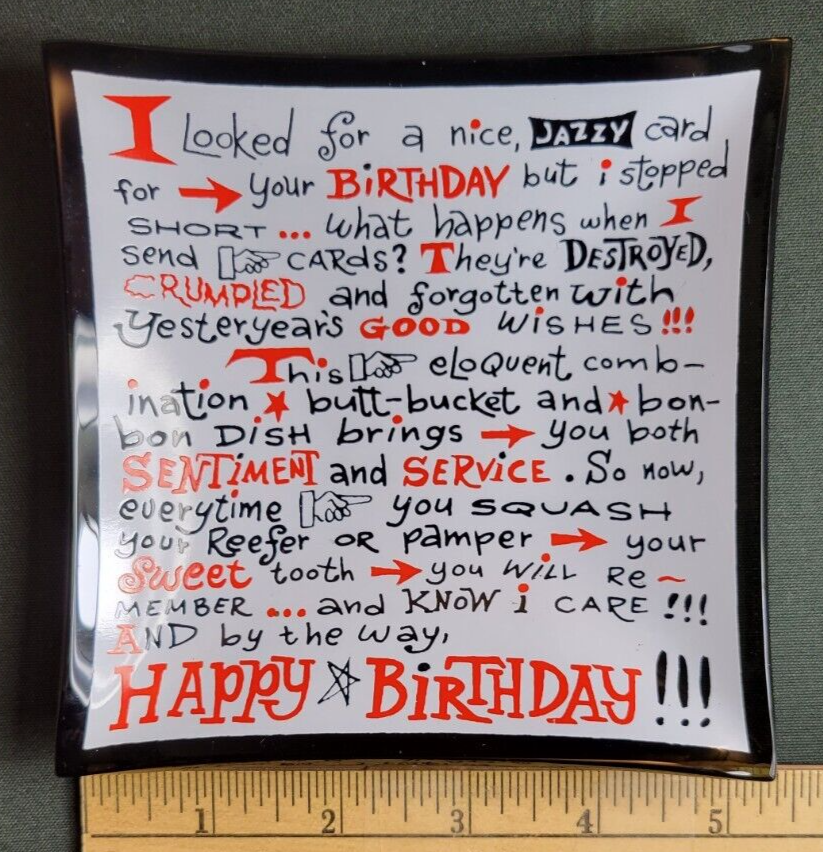 I Looked for a nice, JAZZY card
for → your BiRTHDAY but i stopped
SHORT ... what happens when I
send ☞ CARdS? They're DESTROYED,
CRUMPLED and forgotten with
Yesteryear's GOOD WiSHES!!!
This ☞ eLoQuent comb-
ination ★ butt-bucket and ★ bon-
bon DiSH brings → you both
SENTiMENT and SERViCE. So now,
everytime ☞ you SQUASH
your Reefer OR pamper → your
Sweet tooth → you WiLL Re~
MEMBER ... and KNOW i CARE !!!
AND by the way,
HAPPY ☆ BiRTHDAY!!!
1 2 3 4 5